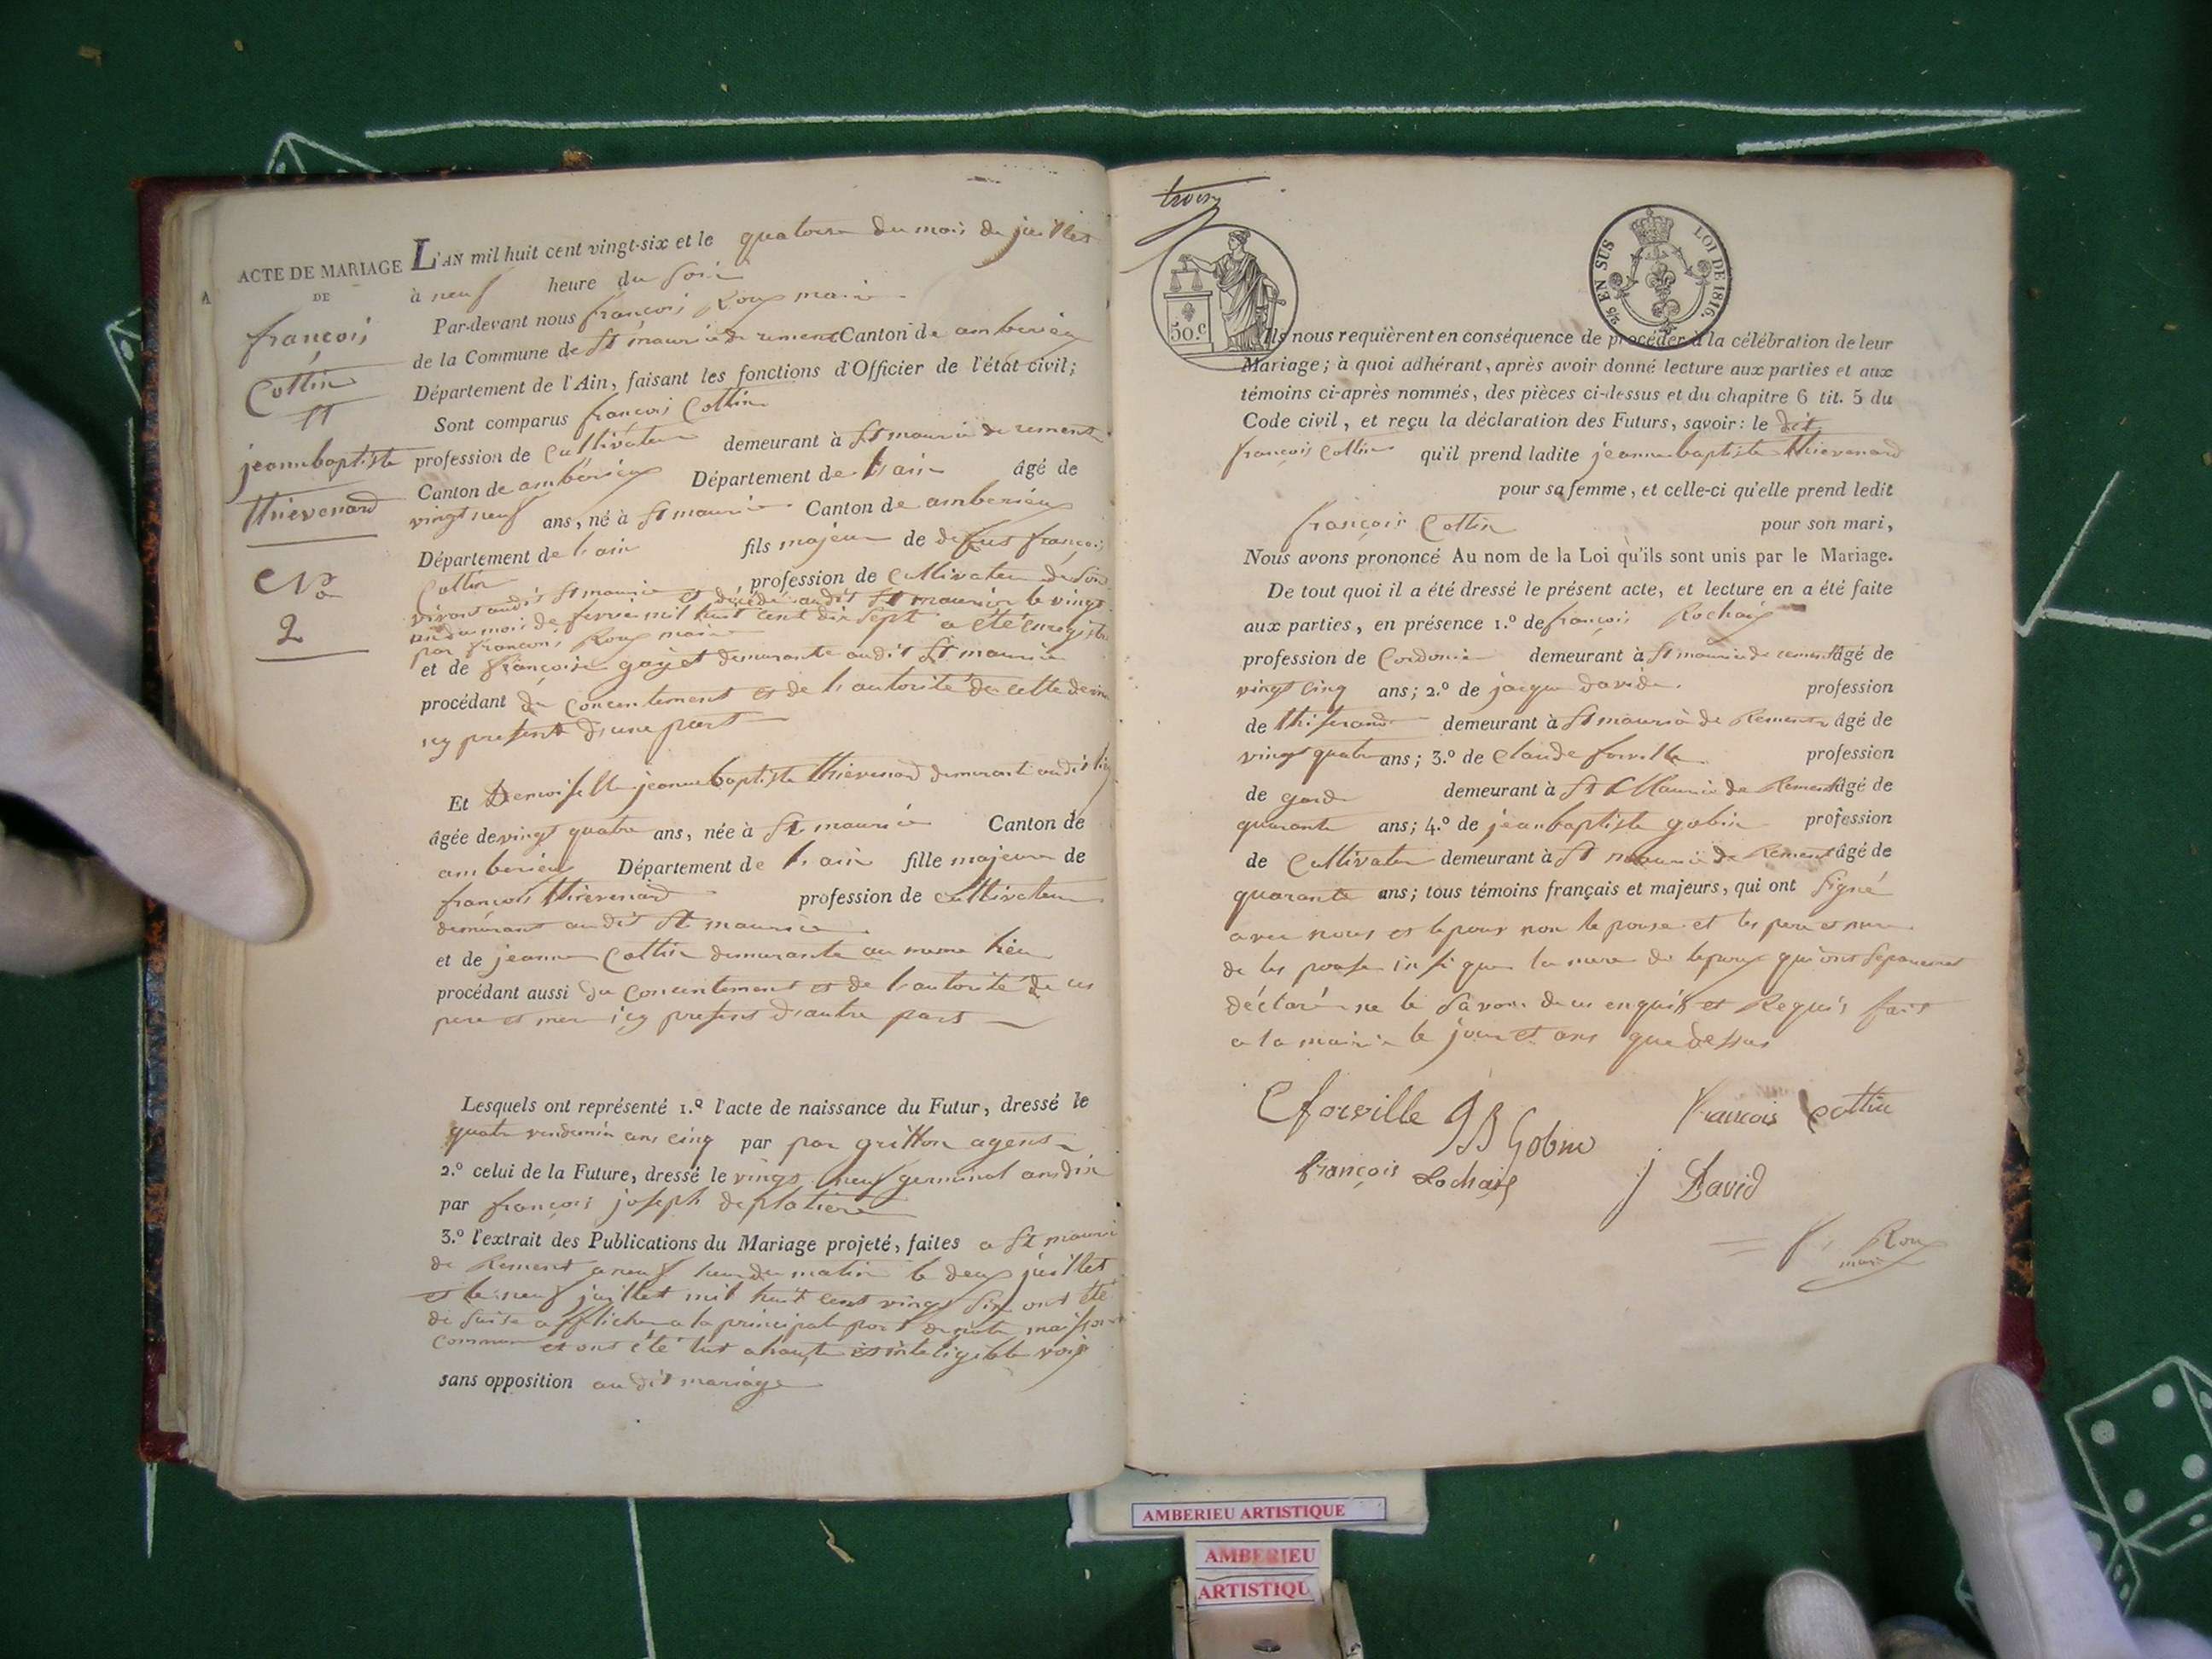 ACTE DE MARIAGE
DE
françois
Cottin
et
jeanne baptiste
Thievenard
No
2
L'AN mil huit cent vingt-six et le quatorse du mois de juillet
à neuf heure du soir
Par-devant nous françois Roux maire
de la Commune de St maurice de remens Canton de amberieux
Département de l'Ain, faisant les fonctions d'Officier de l'état civil;
Sont comparus françois Cottin
profession de Cultivateur demeurant à St maurice de remens
Canton de amberieux Département de l'ain âgé de
vingt neuf ans, né à St maurice Canton de amberieux
Département de l'ain fils majeur de defus françois
Cottin profession de Cultivateur de son
vivant audit St maurice et décédé audit St maurice le vingt
un du mois de mil huit cent dix sept a été enregistré
par françois Roux maire
et de françoise gayet demurante audit St maurice
procédant du concentement et de l'autorité de cette
icy present d'une part
Et Demoiselle jeanne baptiste thievenard demurante audit lieu
âgée de vingt quatre ans, née à St maurice Canton de
amberieux Département de l'ain fille majeure de
françois thievenard profession de cultivateur
demurant audit St maurice
et de jeanne Cottin demurante au meme lieu
procédant aussi du concentement et de l'autorité de ces
pere et mere icy present d'autre part
Lesquels ont représenté 1.º l'acte de naissance du Futur, dressé le
quatre vendemier ans cinq par par gritton agent
2.º celui de la Future, dressé le vingt neuf germinal ans dix
par françois joseph deplatiere
3.º l'extrait des Publications du Mariage projeté, faites a St maurice
de Remens a neuf heur du matin le deux juillet
et le neuf juillet mil huit cent vingt six ont été
de suite afficher a la principale porte de notre maison
commune et ont été lut a haute et inteligible voix
sans opposition au dit mariage
trois
50.c
2/5 EN SUS LOI DE 1816.
Ils nous requièrent en conséquence de procéder à la célébration de leur
Mariage; à quoi adhérant, après avoir donné lecture aux parties et aux
témoins ci-après nommés, des pièces ci-dessus et du chapitre 6 tit. 5 du
Code civil, et reçu la déclaration des Futurs, savoir: le dit
françois Cottin qu'il prend ladite jeanne baptiste thievenard
pour sa femme, et celle-ci qu'elle prend ledit
françois Cottin pour son mari,
Nous avons prononcé Au nom de la Loi qu'ils sont unis par le Mariage.
De tout quoi il a été dressé le présent acte, et lecture en a été faite
aux parties, en présence 1.º de françois Rochaix
profession de Cordonier demeurant à St maurice de remens âgé de
vingt cinq ans; 2.º de jacque davide profession
de thiserand demeurant à St maurice de Remens âgé de
vingt quatre ans; 3.º de Claude forville profession
de garde demeurant à St Maurice de Remens âgé de
quarante ans; 4.º de jean baptiste gobin profession
de Cultivateur demeurant à St maurice de Remens âgé de
quarante ans; tous témoins français et majeurs, qui ont signé
avec nous et lepoux non lepouse et les pere et mere
de lepouse insi que la mere de lepoux qui ont separement
déclaré ne le savoir de ce enquis et Requis fait
a la mairie le jour et ans que dessus
C forville JB Gobin françois Cottin
françois Rochaix J David
f. Roux
maire
AMBERIEU ARTISTIQUE
AMBERIEU
ARTISTIQU